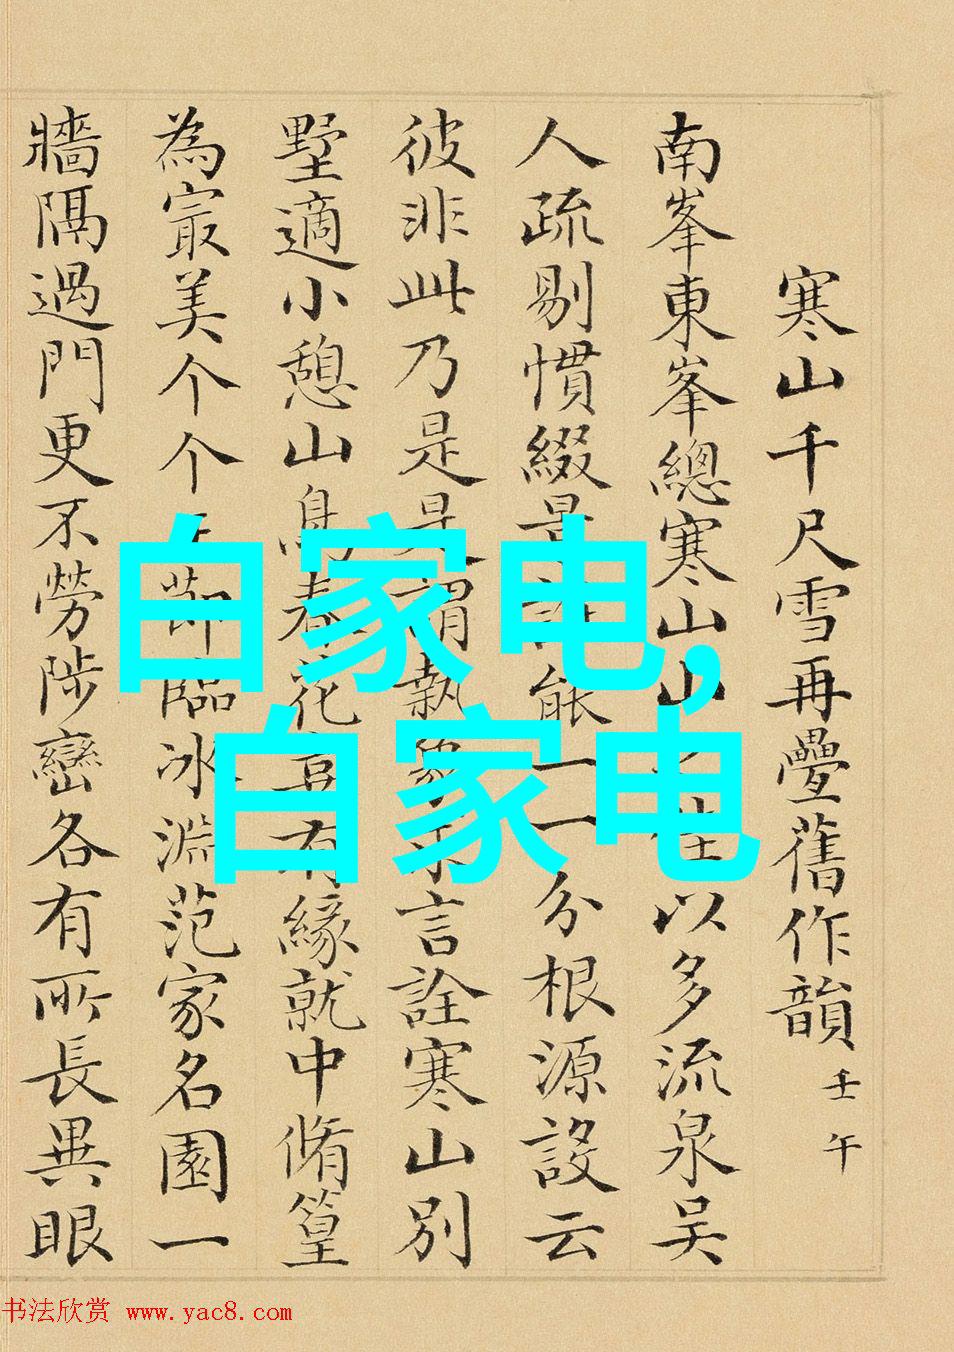 寒山千尺雪再疊舊作韻 壬午
南峯東峯總寒山山佳以多流泉吳
人疏剔慣綴景能一一分根源設云
彼非此乃是是謂執象求言詮寒山別
墅適小憩山鳥春花有緣就中脩篁
為冣美个个玉莭臨冰淵范家名園一
牆隔過門更不勞陟巒各有所長異眼
白家电,
白家电
书法欣赏 www.yac8.com